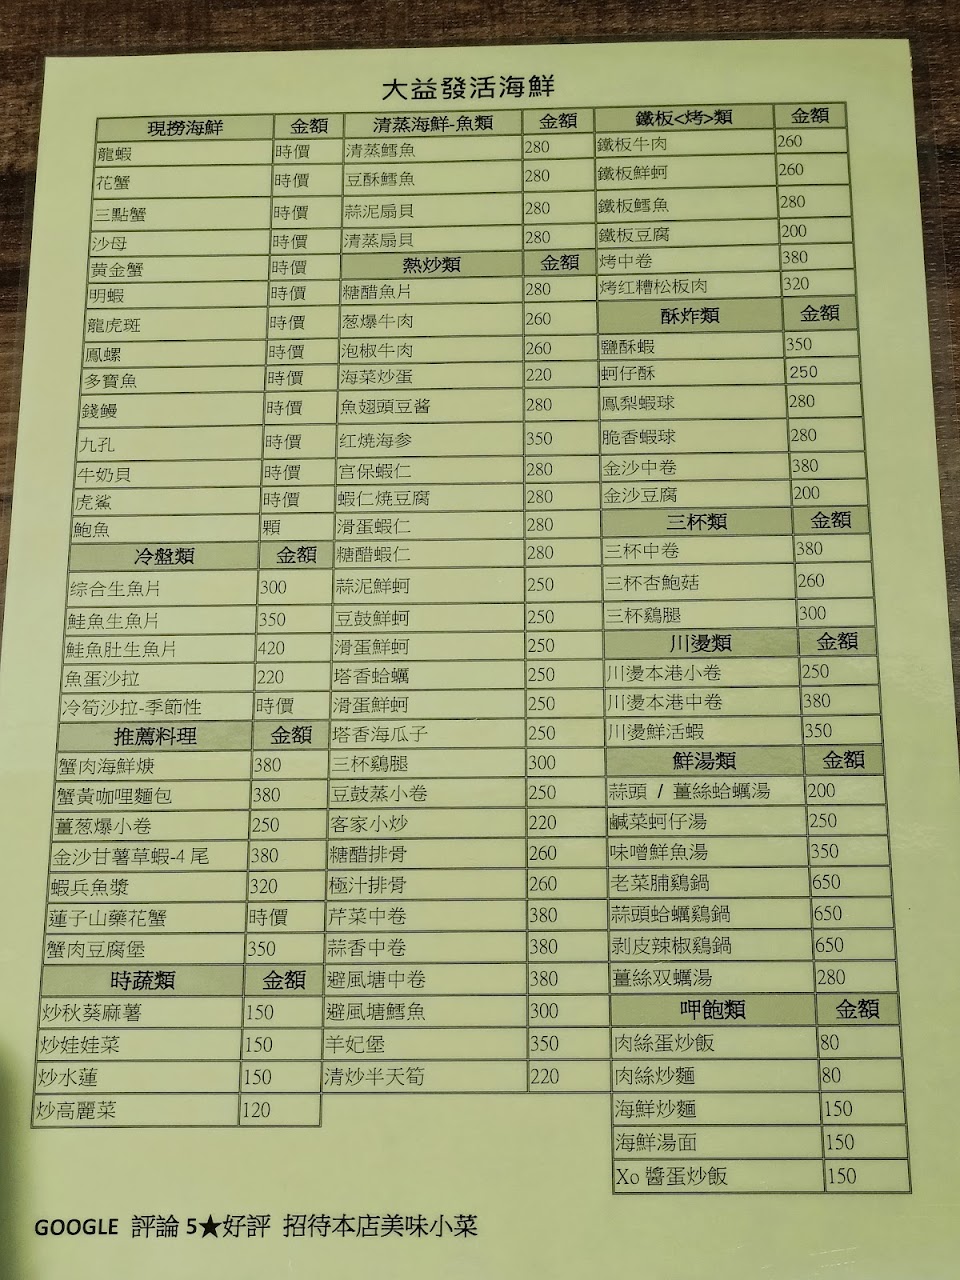 大益發活海鮮
現撈海鮮 金額
龍蝦 時價
花蟹 時價
三點蟹 時價
沙母 時價
黃金蟹 時價
明蝦 時價
龍虎斑 時價
鳳螺 時價
多寶魚 時價
錢鰻 時價
九孔 時價
牛奶貝 時價
虎鯊 時價
鮑魚 顆
冷盤類 金額
综合生魚片 300
鮭魚生魚片 350
鮭魚肚生魚片 420
魚蛋沙拉 220
冷筍沙拉-季節性 時價
推薦料理 金額
蟹肉海鮮焿 380
蟹黃咖哩麵包 380
薑葱爆小卷 250
金沙甘薯草蝦-4 尾 380
蝦兵魚漿 320
蓮子山藥花蟹 時價
蟹肉豆腐堡 350
時蔬類 金額
炒秋葵麻薯 150
炒娃娃菜 150
炒水蓮 150
炒高麗菜 120
清蒸海鮮-魚類 金額
清蒸鱈魚 280
豆酥鱈魚 280
蒜泥扇貝 280
清蒸扇貝 280
熱炒類 金額
糖醋魚片 280
葱爆牛肉 260
泡椒牛肉 260
海菜炒蛋 220
魚翅頭豆酱 280
红燒海參 350
宫保蝦仁 280
蝦仁燒豆腐 280
滑蛋蝦仁 280
糖醋蝦仁 280
蒜泥鮮蚵 250
豆鼓鮮蚵 250
滑蛋鮮蚵 250
塔香蛤蠣 250
滑蛋鮮蚵 250
塔香海瓜子 250
三杯鷄腿 300
豆鼓蒸小卷 250
客家小炒 220
糖醋排骨 260
極汁排骨 260
芹菜中卷 380
蒜香中卷 380
避風塘中卷 380
避風塘鱈魚 300
羊妃堡 350
清炒半天筍 220
鐵板<烤>類 金額
鐵板牛肉 260
鐵板鮮蚵 260
鐵板鱈魚 280
鐵板豆腐 200
烤中卷 380
烤红糟松板肉 320
酥炸類 金額
鹽酥蝦 350
蚵仔酥 250
鳳梨蝦球 280
脆香蝦球 280
金沙中卷 380
金沙豆腐 200
三杯類 金額
三杯中卷 380
三杯杏鮑菇 260
三杯鷄腿 300
川燙類 金額
川燙本港小卷 250
川燙本港中卷 380
川燙鮮活蝦 350
鮮湯類 金額
蒜頭 / 薑絲蛤蠣湯 200
鹹菜蚵仔湯 250
味噌鮮魚湯 350
老菜脯鷄鍋 650
蒜頭蛤蠣鷄鍋 650
剥皮辣椒鷄鍋 650
薑絲双蠣湯 280
呷飽類 金額
肉絲蛋炒飯 80
肉絲炒麵 80
海鮮炒麵 150
海鮮湯面 150
Xo 醬蛋炒飯 150
GOOGLE 評論 5★好評 招待本店美味小菜